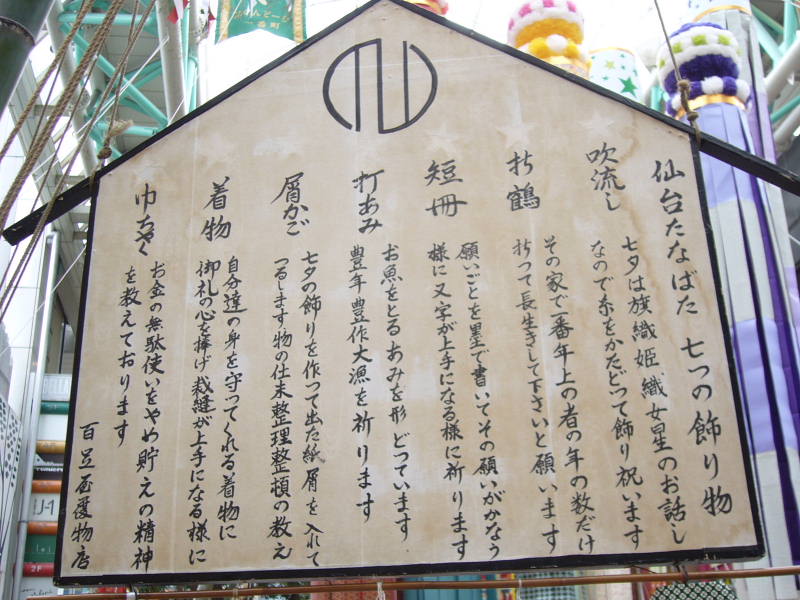 仙台たなばた 七つの飾り物
吹流し
七夕は旗織姫、織女星のお話し
なので糸をかたどって飾り祝います
折鶴
その家で一番年上の者の年の数だけ
折つて長生きして下さいと願います
短冊
願いごとを墨で書いてその願いがかなう
様に又字が上手になる様に祈ります
打あみ
お魚をとるあみを形どっています
豊年豊作大漁を祈ります
屑かご
七夕の飾りを作って出た紙屑を入れて
つるします物の仕末整理整頓の教え
着物
自分達の身を守ってくれる着物に
御礼の心を捧げ裁縫が上手になる様に
巾ちゃく
お金の無駄使いをやめ貯えの精神
を教えております
百足屋履物店